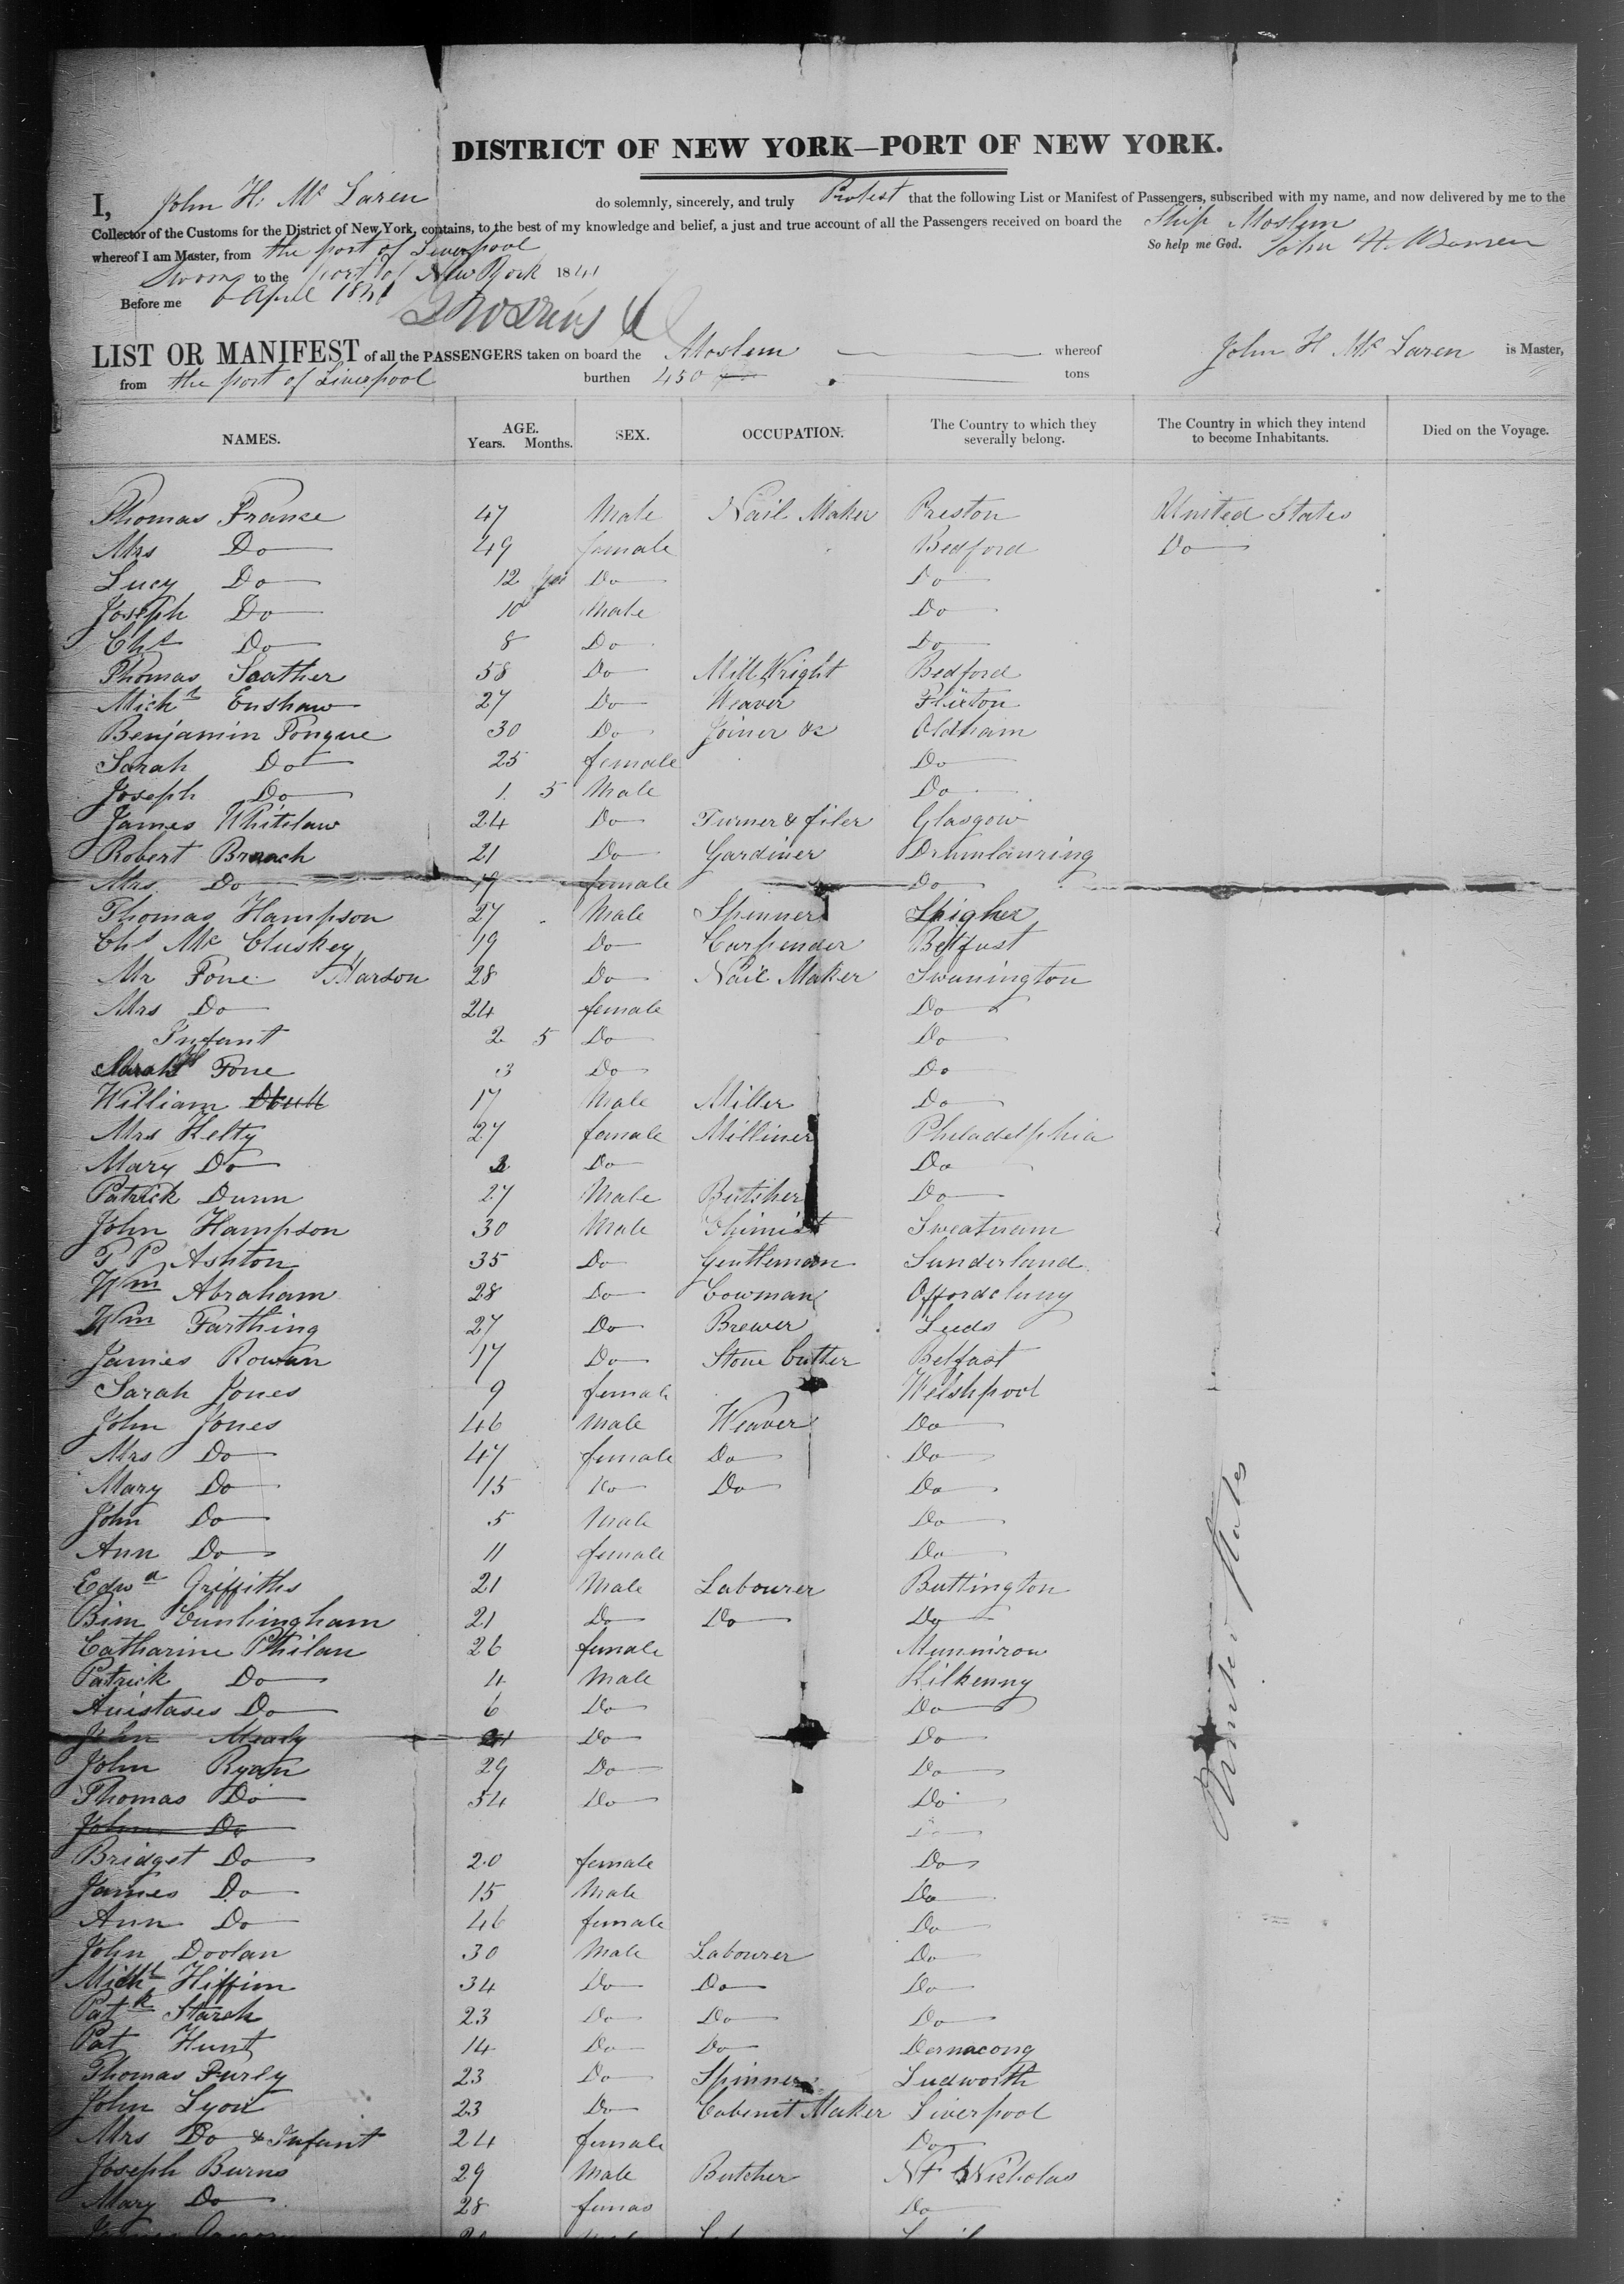 DISTRICT OF NEW YORK—PORT OF NEW YORK.
I, John H. Mc Laren do solemnly, sincerely, and truly Protest that the following List or Manifest of Passengers, subscribed with my name, and now delivered by me to the
Collector of the Customs for the District of New York, contains, to the best of my knowledge and belief, a just and true account of all the Passengers received on board the Ship Moslem
whereof I am Master, from the port of Liverpool So help me God. John H.
Sworn to the port of New York 1841
Before me 6 April 1841
LIST OR MANIFEST of all the PASSENGERS taken on board the Moslem whereof John H Mc Laren is Master,
from the port of Liverpool burthen 450 tons
NAMES. AGE. Years. Months. SEX. OCCUPATION. The Country to which they severally belong. The Country in which they intend to become Inhabitants. Died on the Voyage.
Thomas France 47 Male Nail Maker Preston United States
Mrs Do 49 female Bedford Do
Lucy Do 12 Do Do
Joseph Do 10 Male Do
Chs Do 8 Do Do
Thomas Scather 58 Do Mill Wright Bedford
Michl Enshaw 27 Do Weaver Flixton
Benjamin Pongue 30 Do Joiner &c Oldham
Sarah Do 25 female Do
Joseph Do 1 5 Male Do
James Whitelaw 24 Do Turner & filer Glasgow
Robert Broach 21 Do Gardiner Drumlanring
Mrs. Do 19 female Do
Thomas Hampson 27 Male Spenner
Chs Mc Cluskey 19 Do Carpender Belfast
Mr Fone Marson 28 Do Nail Maker Swanington
Mrs Do 24 female Do
Infant 2 5 Do Do
Sarah Fone 3 Do Do
William 17 Male Miller Do
Mrs Kelty 27 female Milliner Philadelphia
Mary Do 2 Do Do
Patrick Dunn 27 Male Butcher Do
John Hampson 30 Male Chimist Sweatnam
T P Ashton 35 Do Gentleman Sunderland
Wm Abraham 28 Do Cowman Offordcluny
Wm Farthing 27 Do Brewer Leeds
James Rowan 17 Do Stone Cutter Belfast
Sarah Jones 9 female Welshpool
John Jones 46 Male Weaver Do
Mrs Do 47 female Do Do
Mary Do 15 Do Do Do
John Do 5 Male Do
Ann Do 11 female Do
Edwd Griffiths 21 Male Labourer Buttington
Bim Cunlingham 21 Do Do Do
Catharine Philan 26 female Munnirow
Patrick Do 4 Male Kilkenny
Anistases Do 6 Do Do
John Meady Do Do
John Ryan 29 Do Do
Thomas Do 54 Do Do
John Do Do
Bridget Do 20 female Do
James Do 15 Male Do
Ann Do 46 female Do
John Doolan 30 Male Labourer Do
Michl Hiffim 34 Do Do Do
Patk Starch 23 Do Do Do
Pat Hunt 14 Do Do Dernacong
Thomas Furly 23 Do Spinner Ludworth
John Lyon 23 Do Cabinet Maker Liverpool
Mrs Do & Infant 24 female Do
Joseph Burns 29 Male Butcher Nicholas
Mary Do 28 femao Do
United States